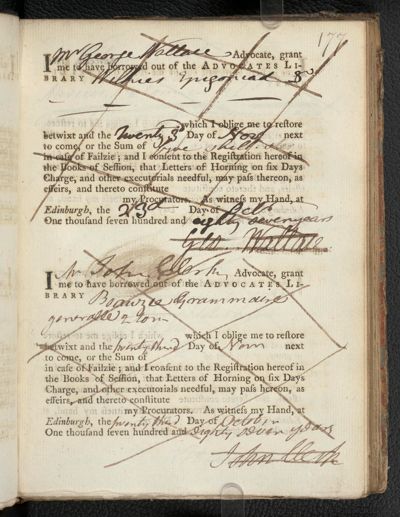 177
I Mr George Wallace Advocate, grant
me to have borrowed out of the ADVOCATES LI-
BRARY Wilkies Epigoniad 8o
which I oblige me to restore
betwixt and the Twenty 3d Day of Novr next
to come, or the Sum of five shill.
in case of Failzie ; and I consent to the Registration hereof in
the Books of Session, that Letters of Horning on six Days
Charge, and other executorials needful, may pass hereon, as
effeirs, and thereto constitute
my Procurators. As witness my Hand, at
Edinburgh, the 23d Day of Octr
One thousand seven hundred and eighty seven years
Geo. Wallace
I Mr. John Clerk, Advocate, grant
me to have borrowed out of the ADVOCATES LI-
BRARY Beauzee Grammaire
generale 2 tom
which I oblige me to restore
betwixt and the twenty third Day of Novr next
to come, or the Sum of
in case of Failzie ; and I consent to the Registration hereof in
the Books of Session, that Letters of Horning on six Days
Charge, and other executorials needful, may pass hereon, as
effeirs, and thereto constitute
my Procurators. As witness my Hand, at
Edinburgh, the twenty third Day of October
One thousand seven hundred and eighty seven years
John Clerk